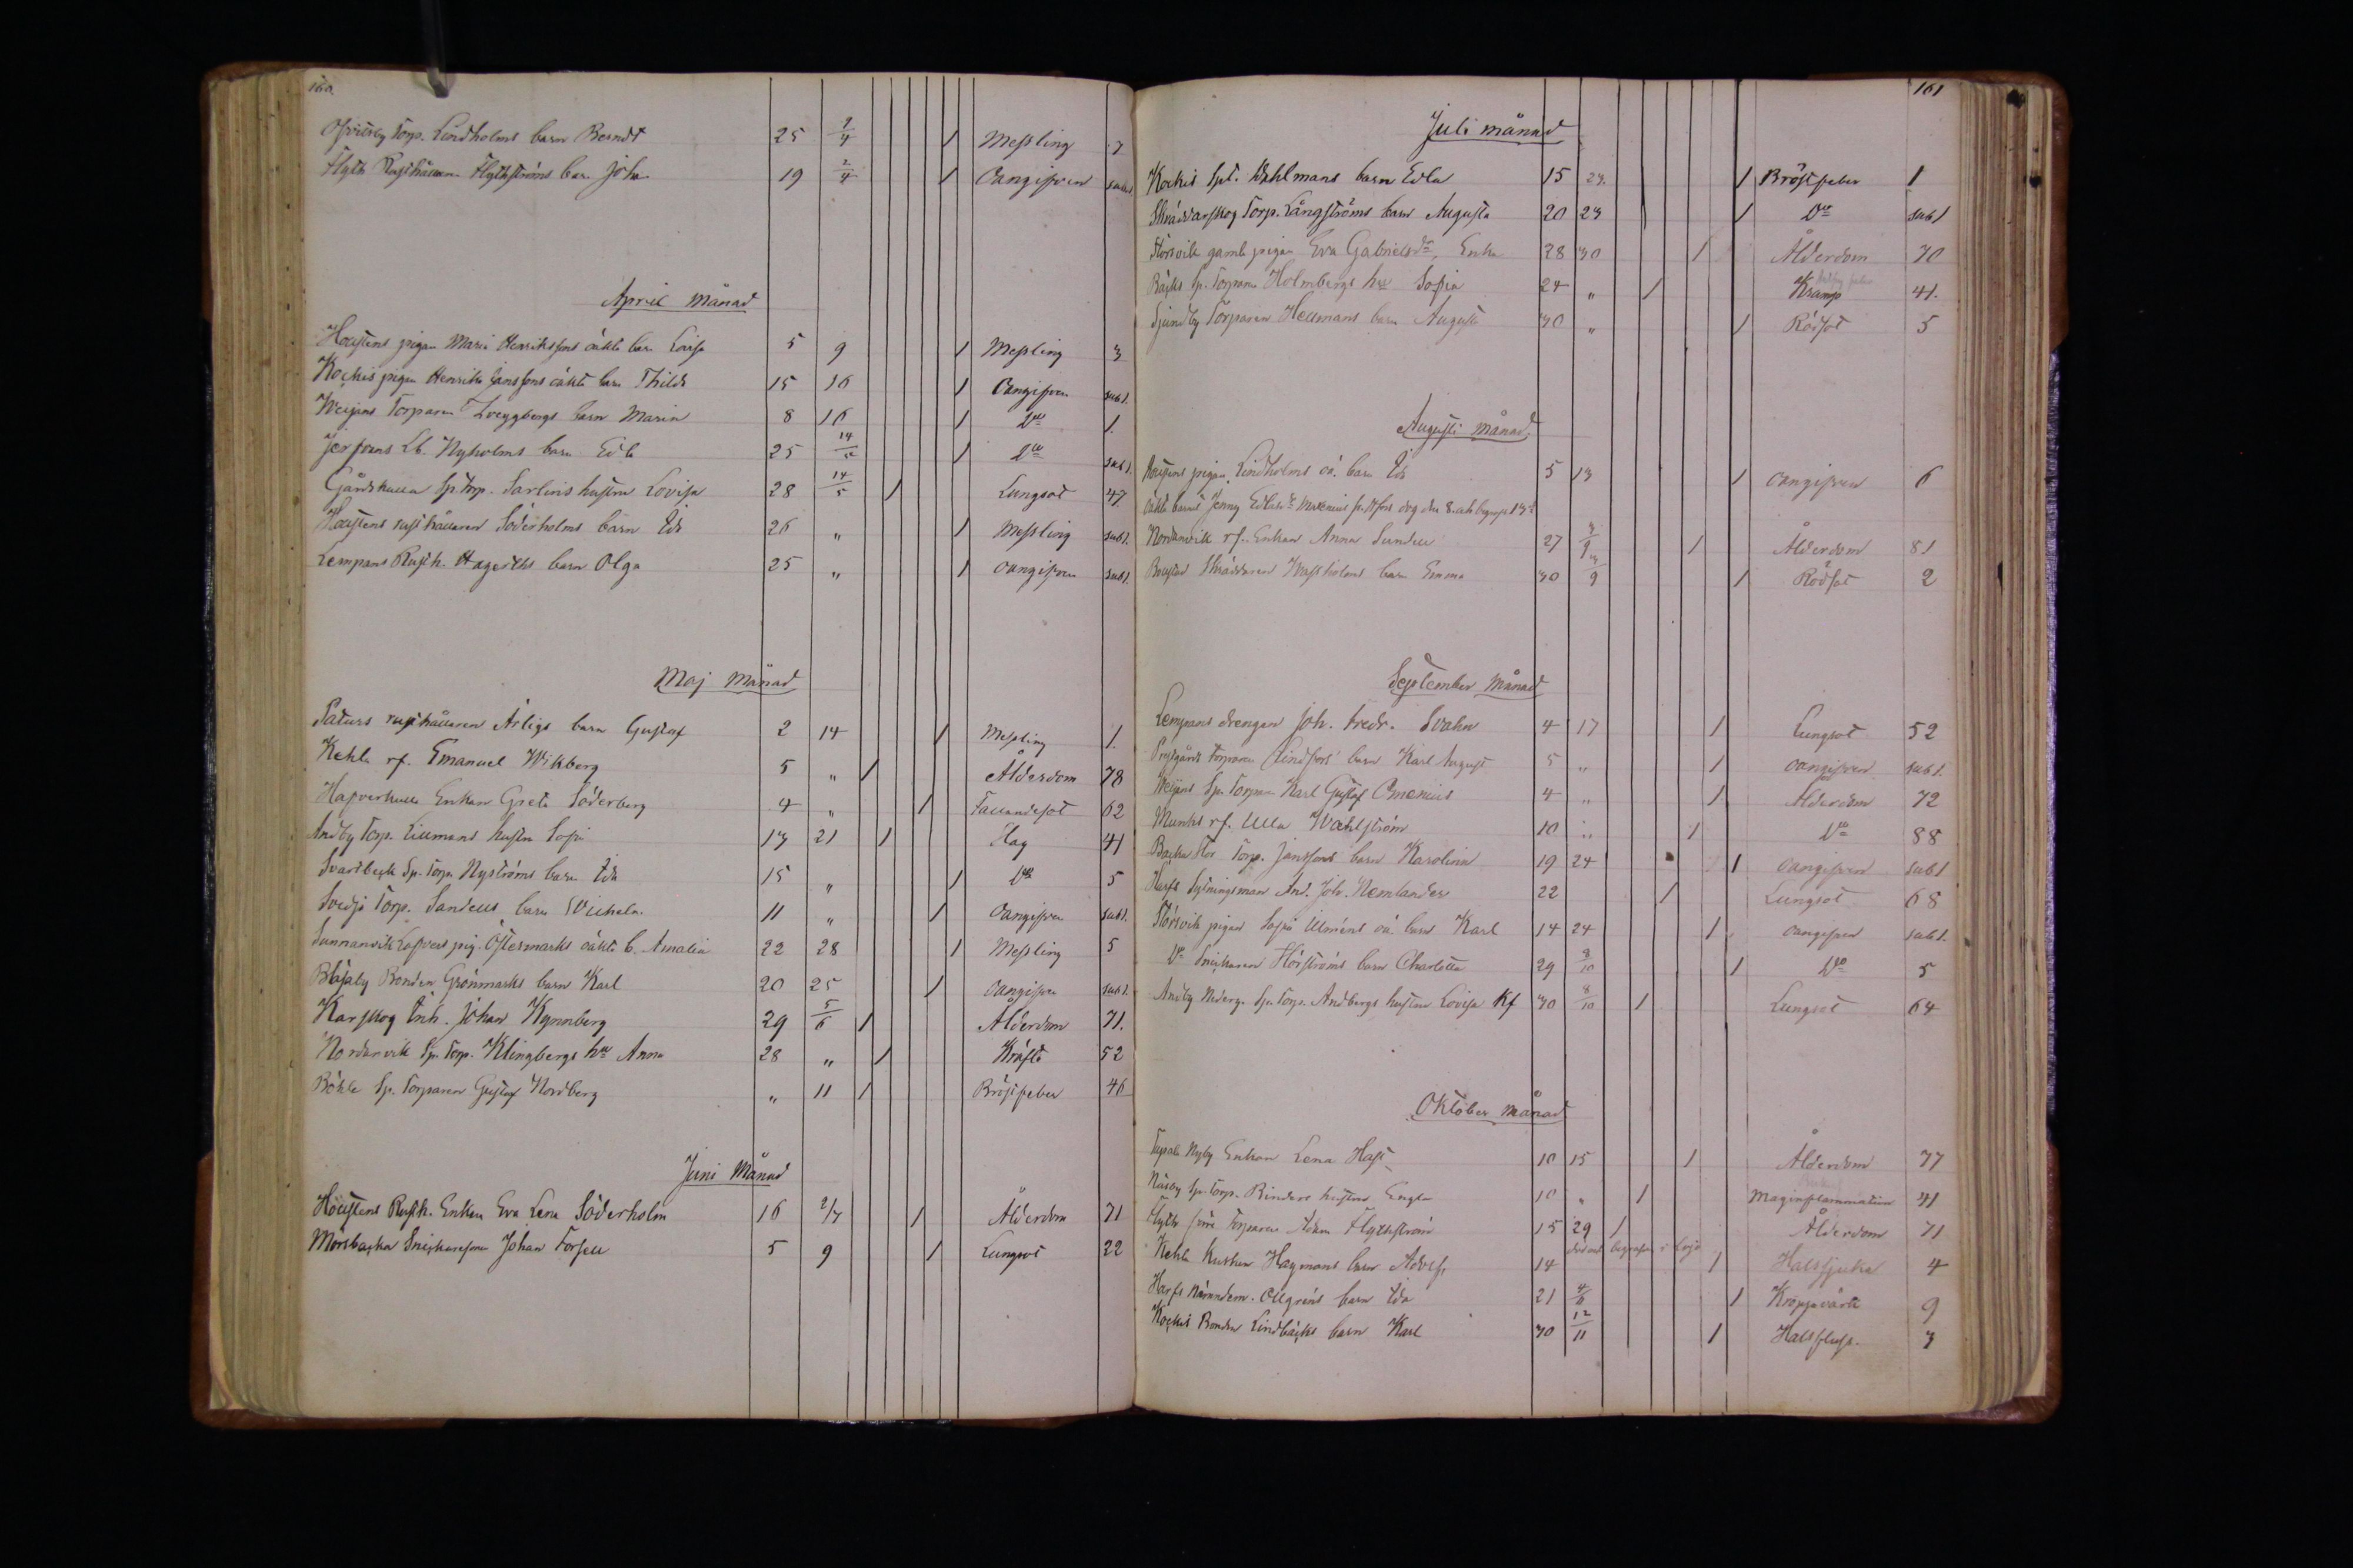 160.
Torp. Lindholms barn Berndt 25 9/4 1 Messling 7
Flyth Rusthållaren Flythströms barn Joh. 19 2/4 1 Oangifven sub 1
April Månad
pigan Maria Henrikssons oäkta barn Lovisa 5 9 1 Messling 3
Kockis pigan Henrika Janssons oäkta barn Thilda 15 16 1 Oangifven sub 1.
Torparen barn Maria 8 16 1 Do 1.
Lb. Nyholms barn Edla 25 14/5 1 Do sub 1.
Gårdskulla Sp. Torp. Sarlins hustru Lovisa 28 14/5 1 Lungsot 47.
rusthållaren Söderholms barn Ida 26 " 1 Messling sub 1.
Lempans Rusth. Hagerths barn Olga 25 " 1 Oangifven sub 1.
Maj Månad
rusthållaren Ärligs barn Gustaf 2 14 1 Messling 1.
Kehla rf. Emanuel Wikberg 5 " 1 Ålderdom 78
Hafverkulla Enkan Greta Söderberg 4 " 1 Fallandesot 62
Andby Torp. Lillmans hustru Sofia 13 21 1 Hag 41
Svartbeck Sp. Torp. Nyströms barn Ida 15 " 1 Do 5
Svedja Torp. Sandells barn Wilhelm. 11 " 1 Oangifven sub 1.
Sunnanvik pig. Östermarks oäkta b. Amalia 22 28 1 Messling 5
Bonden Grönmarks barn Karl 20 25 1 Oangifven sub 1.
Karskog Inh. Johan Kynnberg 29 5/6 1 Ålderdom 71.
Nordanvik Sp. Torp. Klingbergs hu Anna 28 " 1 Kräfta 52
Böhle Sp. Torparen Gustaf Nordberg " 11 1 Bröstfeber 46
Juni Månad
Rusth. Enkan Eva Lena Söderholm 16 2/7 1 Ålderdom 71
Morsbacka Johan Forsell 5 9 1 Lungsot 22
161
Juli månad
Kockis Spl. Wahlmans barn Edla 15 23. 1 Bröstfeber 1
Skräddarskog Torp. Långströms barn Augusta 20 23 1 Do sub 1
Störsvik gamla pigan Eva Gabrielsdr, Enka 28 30 1 Ålderdom 70
Bäcks Sp. Torparen Holmbergs hu Sofia 24 " 1 Kramp 41.
Sjundby Torparen Hellmans barn August 30 " 1 Rödsot 5
Augusti Månad
pigan Lindholms oä. barn Ida 5 13 1 Oangifven 6
oäkta barnet Jenny
Nordanvik rf. Enkan Anna Sundell 27 3/9 1 Ålderdom 81
Bollstad Skräddaren barn Emma 30 3/9 1 Rödsot 2
September Månad
Lempans drengen Joh. Fredr. Svahn 4 17 1 Lungsot 52
Prestgårds torparen Lindfors' barn Karl August 5 " 1 Oangifven sub 1.
Sp. Torparen Karl Gustaf Omenius 4 " 1 Ålderdom 72
Munks rf. Ulla Wahlström 10 " 1 Do 88
Bäcka Stor Torp. Janssons barn Karolina 19 24 1 Oangifven sub 1
Harfs Sytningsman And. Joh. Nemlander 22 1 Lungsot 68
Störsvik pigan Sofia Ulméns oä. barn Karl 14 24 1 Oangifven sub 1.
Do Snickaren Hörströms barn Charlotta 29 8/10 1 Do 5
Andby Nederg. Sp. Torp. Andbergs hustru Lovisa Kf 30 8/10 1 Lungsot 64
Oktober månad
Nyby Enkan Lena Hast 10 15 1 Ålderdom 77
Näsby Sp. Torp. Rinders hustru Engla 10 " 1 Maginflammation 41
Flyth förre Torparen Adam Flythström 15 29 1 Ålderdom 71
död och begrafven i Lojo
Kehla Kusken Hagmans barn Adolf, 14 1 Halssjuka 4
Harfs Nämndem. Ollgréns barn Ida 21 4/11 1 Kroppsvärk 9
Kockis Bonden Lindbäcks barn Karl 30 12/11 1 Halsfluss. 3